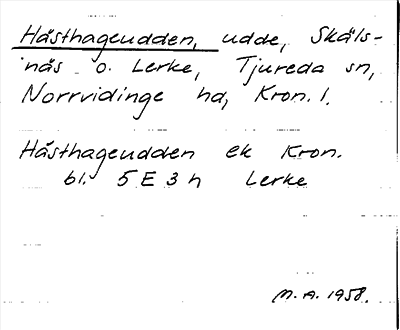 Hästhageudden, udde, Skäls-
näs o. Lerke, Tjureda sn,
Norrvidinge hd, Kron. l.
Hästhageudden ek Kron.
bl. 5 E 3 h Lerke
M. A. 1958.